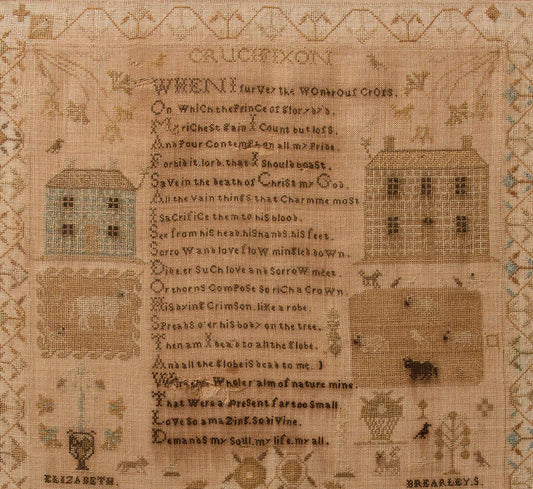 CRUCIFIXON
WHEN I survey the WOnDrOus CrOss.
On Which the Prince of Glory dy'd.
My richest Gain I Count but loss.
And Pour Contempt on all my Pride.
Forbid it, lord, that I Should boast,
Save in the death of Christ my God,
All the Vain things that Charm me most
I Sacrifice them to his blood.
See from his head, his hands, his feet,
Sorrow and love flow mingled down,
Did e,er Such love and Sorrow meet,
Or thorns Compose so rich a Crown,
His dying Crimson, like a robe,
Spreads o'er his body on the tree,
Then am I dead to all the Globe,
And all the Globe is dead to me. )
Were the Whole realm of nature mine,
That Were a Present far too Small,
Love so amazing, so divine,
Demands my Soul, my life, my all,
ELIZABETH. BREARLEY.S.